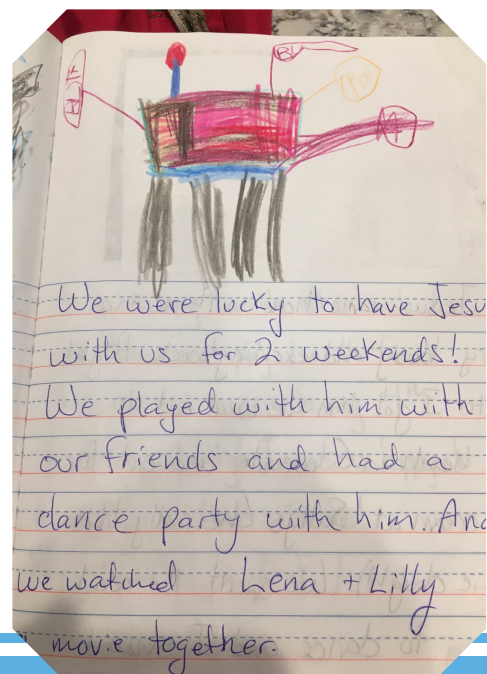 We were lucky to have Jesu
with us for 2 weekends!
We played with him with
our friends and had a
dance party with him. And
we watched Lena + Lilly
movie together.